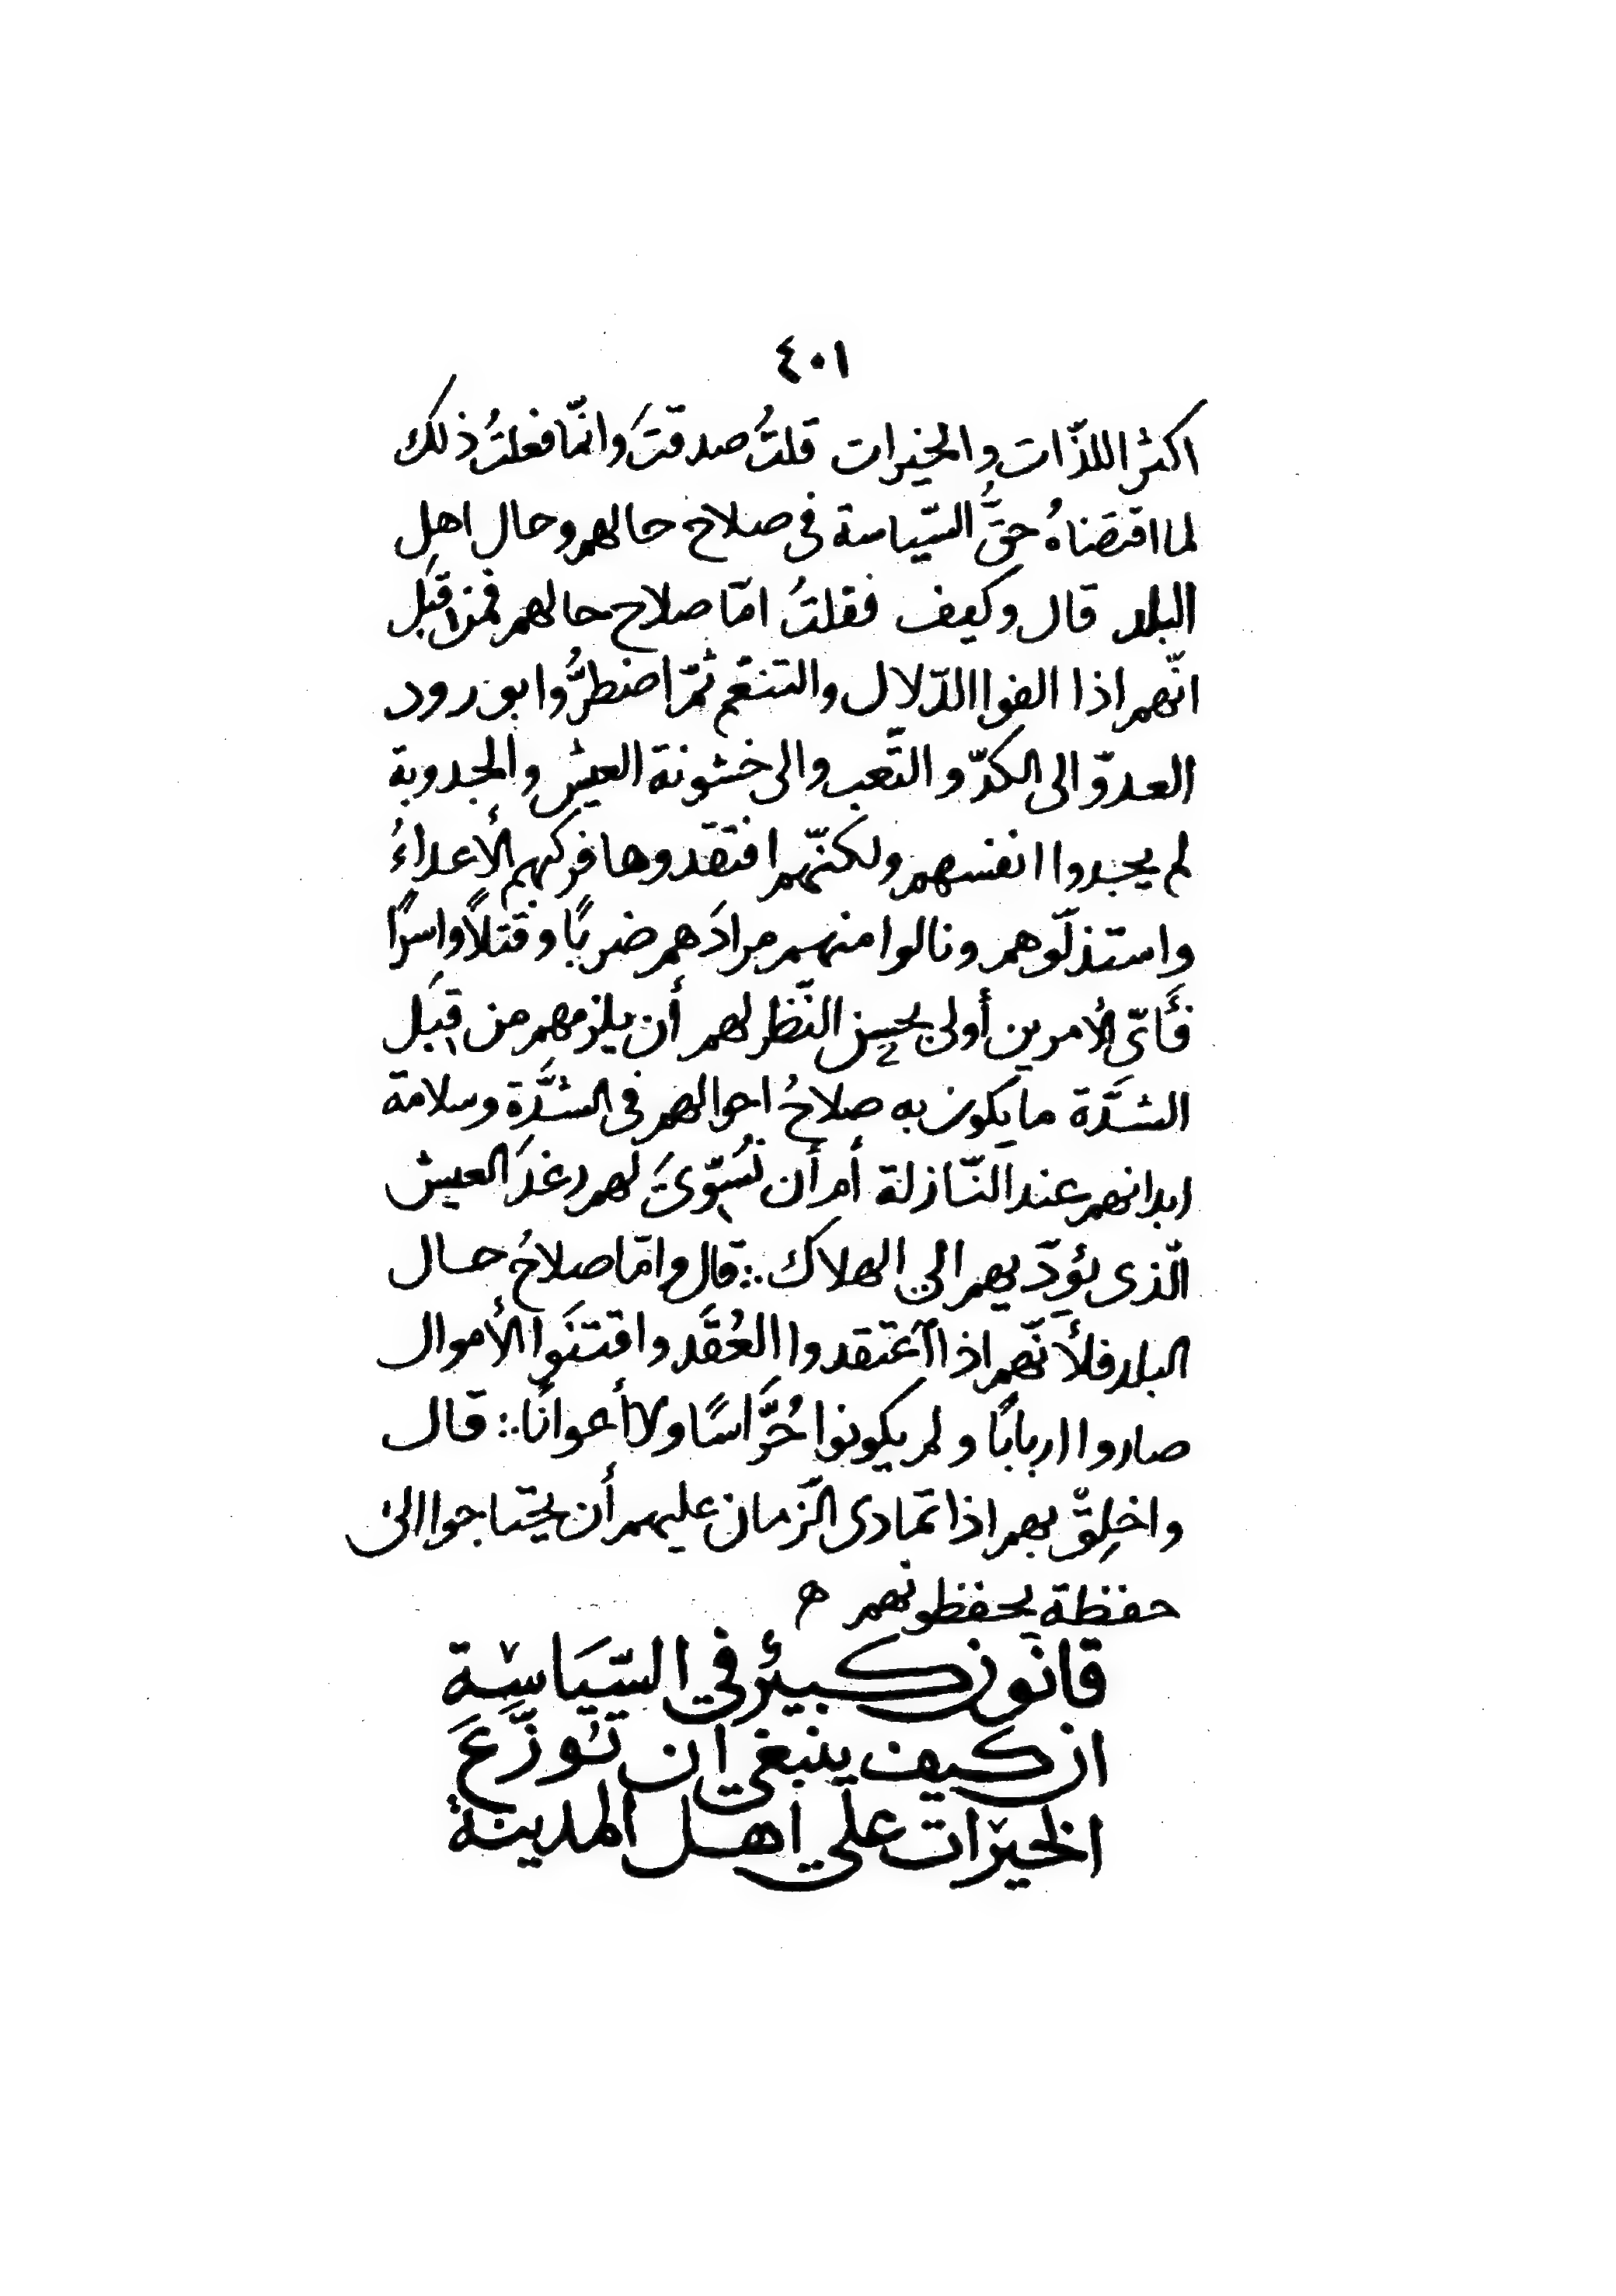 ٤٠١
اكثر اللذّات والخيرات قلتُ صدقتَ وانّما فعلتُ ذلك
لما اقتضاهُ حقُّ السّياسة فى صلاح حالهم وحال اهل
البلد قال وكيف فقلتُ امّا صلاح حالهم فمن قِبَل
انّهم اذا الفوا الدّلال والتنعّم ثمّ اضطرُّوا بورود
العدوّ الى الكدّ والتّعب والى خشونة العيش والجدوبة
لم يجدوا انفسهم ولكنّهم افتقدوها فركبهم الأعداءُ
واستذلّوهم ونالوا منهم مرادَهم ضربًا وقتلاً واسرًا
فَأَىّ الأمرين أولى بحسن النّظر لهم أن يلزمهم من قِبَل
الشدَّة ما يكون به صلاحُ احوالهم فى الشدَّة وسلامة
ابدانهم عند النّازلة أم أن تُسَوِّىَ لهم رغدَ العيش
الّذى يؤدّيهم الى الهلاك ∴ قال وامّا صلاحُ حال
البلد فلأنّهم اذا اعتقدوا العُقَد واقتنَوا الأموال
صاروا اربابًا ولم يكونوا حُرَّاسًا ولا أعوانًا ∴ قال
واخلِقْ بهم اذا تمادى الزّمان عليهم أن يحتاجوا الى
حفظة يحفظونهم ه
قانون كبير في السّيَاسِة
ان كيف ينبغي ان تُوزّعَ
الخيرات علي اهل المدينة